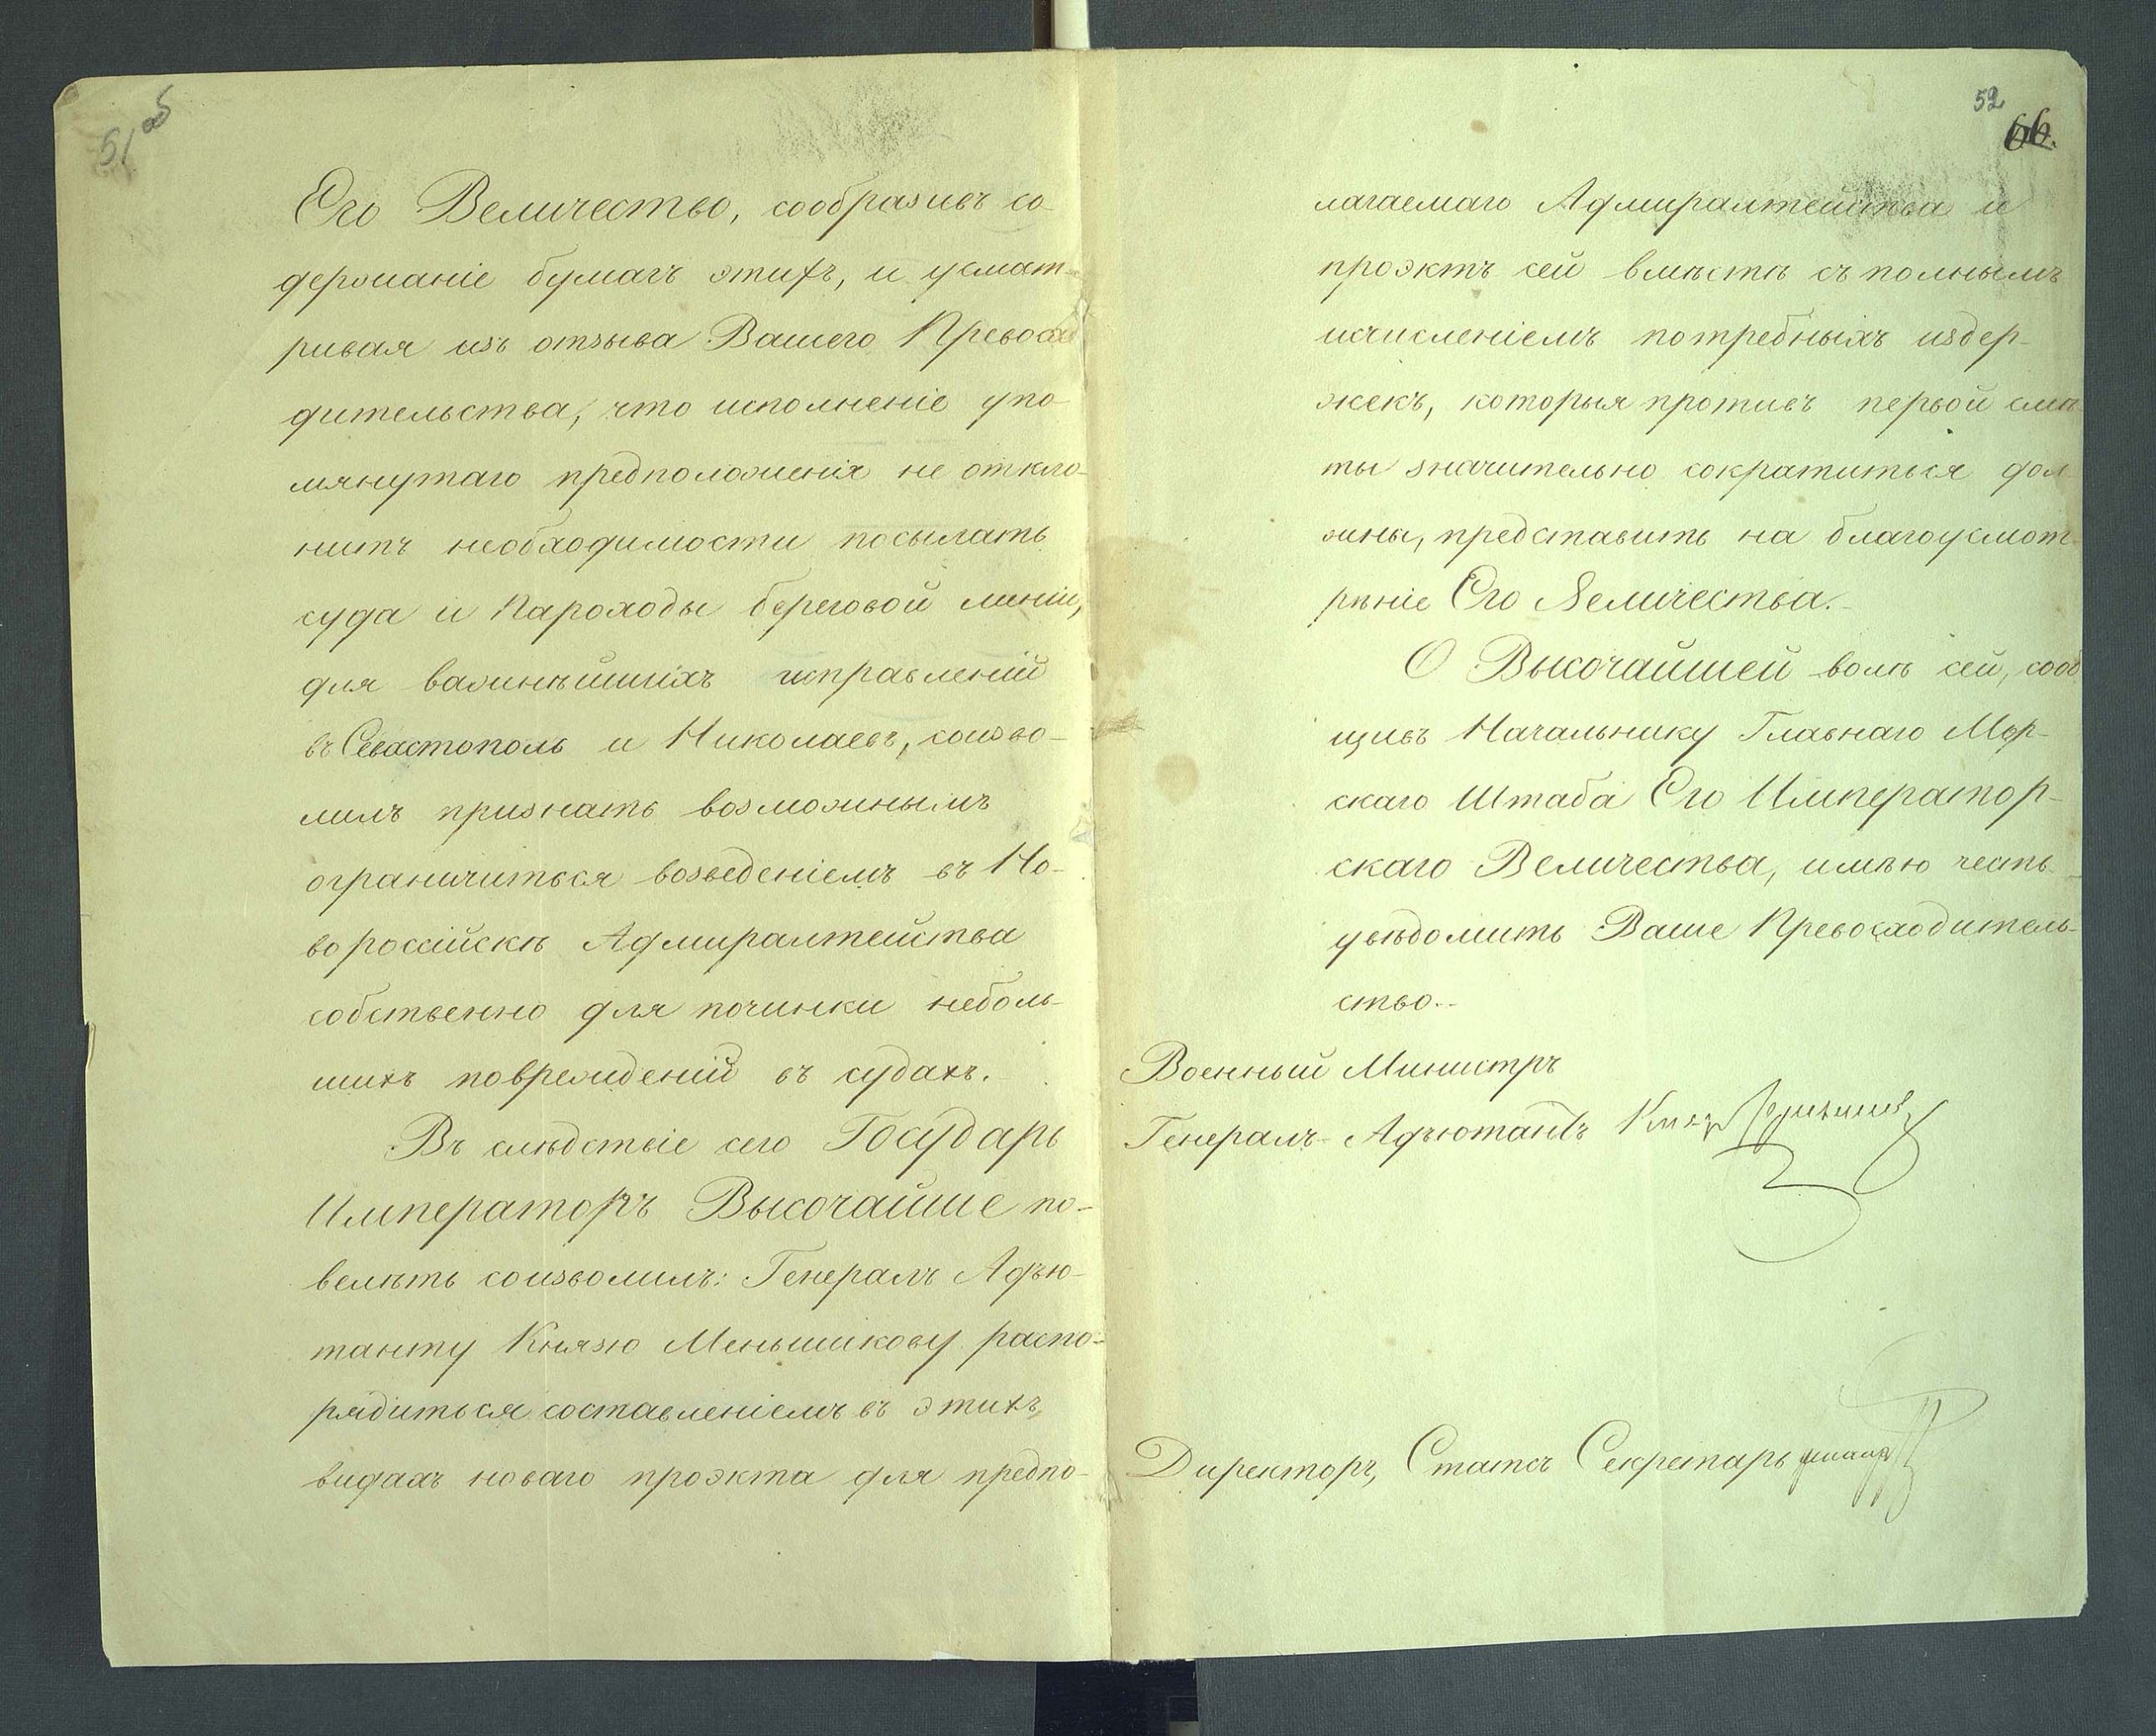 51 об
Его Величество, сообразивъ со-
держаніе бумагъ этихъ, и усмат-
ривая изъ отзыва Вашего Превосхо-
дительства, что исполненіе упо-
мянутаго предположенія не откло-
нитъ необходимости посылать
суда и Пароходы береговой линіи,
для важнѣйшихъ исправленій
въ Севастополь и Николаевъ, соизво-
лилъ признать возможнымъ
ограничиться возведеніемъ въ Но-
вороссійскѣ Адмиралтейства
собственно для починки неболь-
шихъ поврежденій въ судахъ.
Въ слѣдствіе сего Государь
Императоръ Высочайше по-
велѣть соизволилъ: Генералъ Адъю-
танту Князю Меньшикову распо-
рядиться составленіемъ въ этихъ
видахъ новаго проэкта для предпо-
52
66.
лагаемаго Адмиралтейства и
проэктъ сей вмѣстѣ съ полнымъ
исчисленіемъ потребныхъ издер-
жекъ, которыя противъ первой смѣ-
ты значительно сократиться дол-
жны, представить на благоусмот-
рѣніе Его Величества.
О Высочайшей волѣ сей, сооб-
щивъ Начальнику Главнаго Мор-
скаго Штаба Его Император-
скаго Величества, имѣю честь
увѣдомить Ваше Превосходитель-
ство.
Военный Министръ
Генералъ-Адъютантъ Князь
Директоръ, Статсъ Секретарь